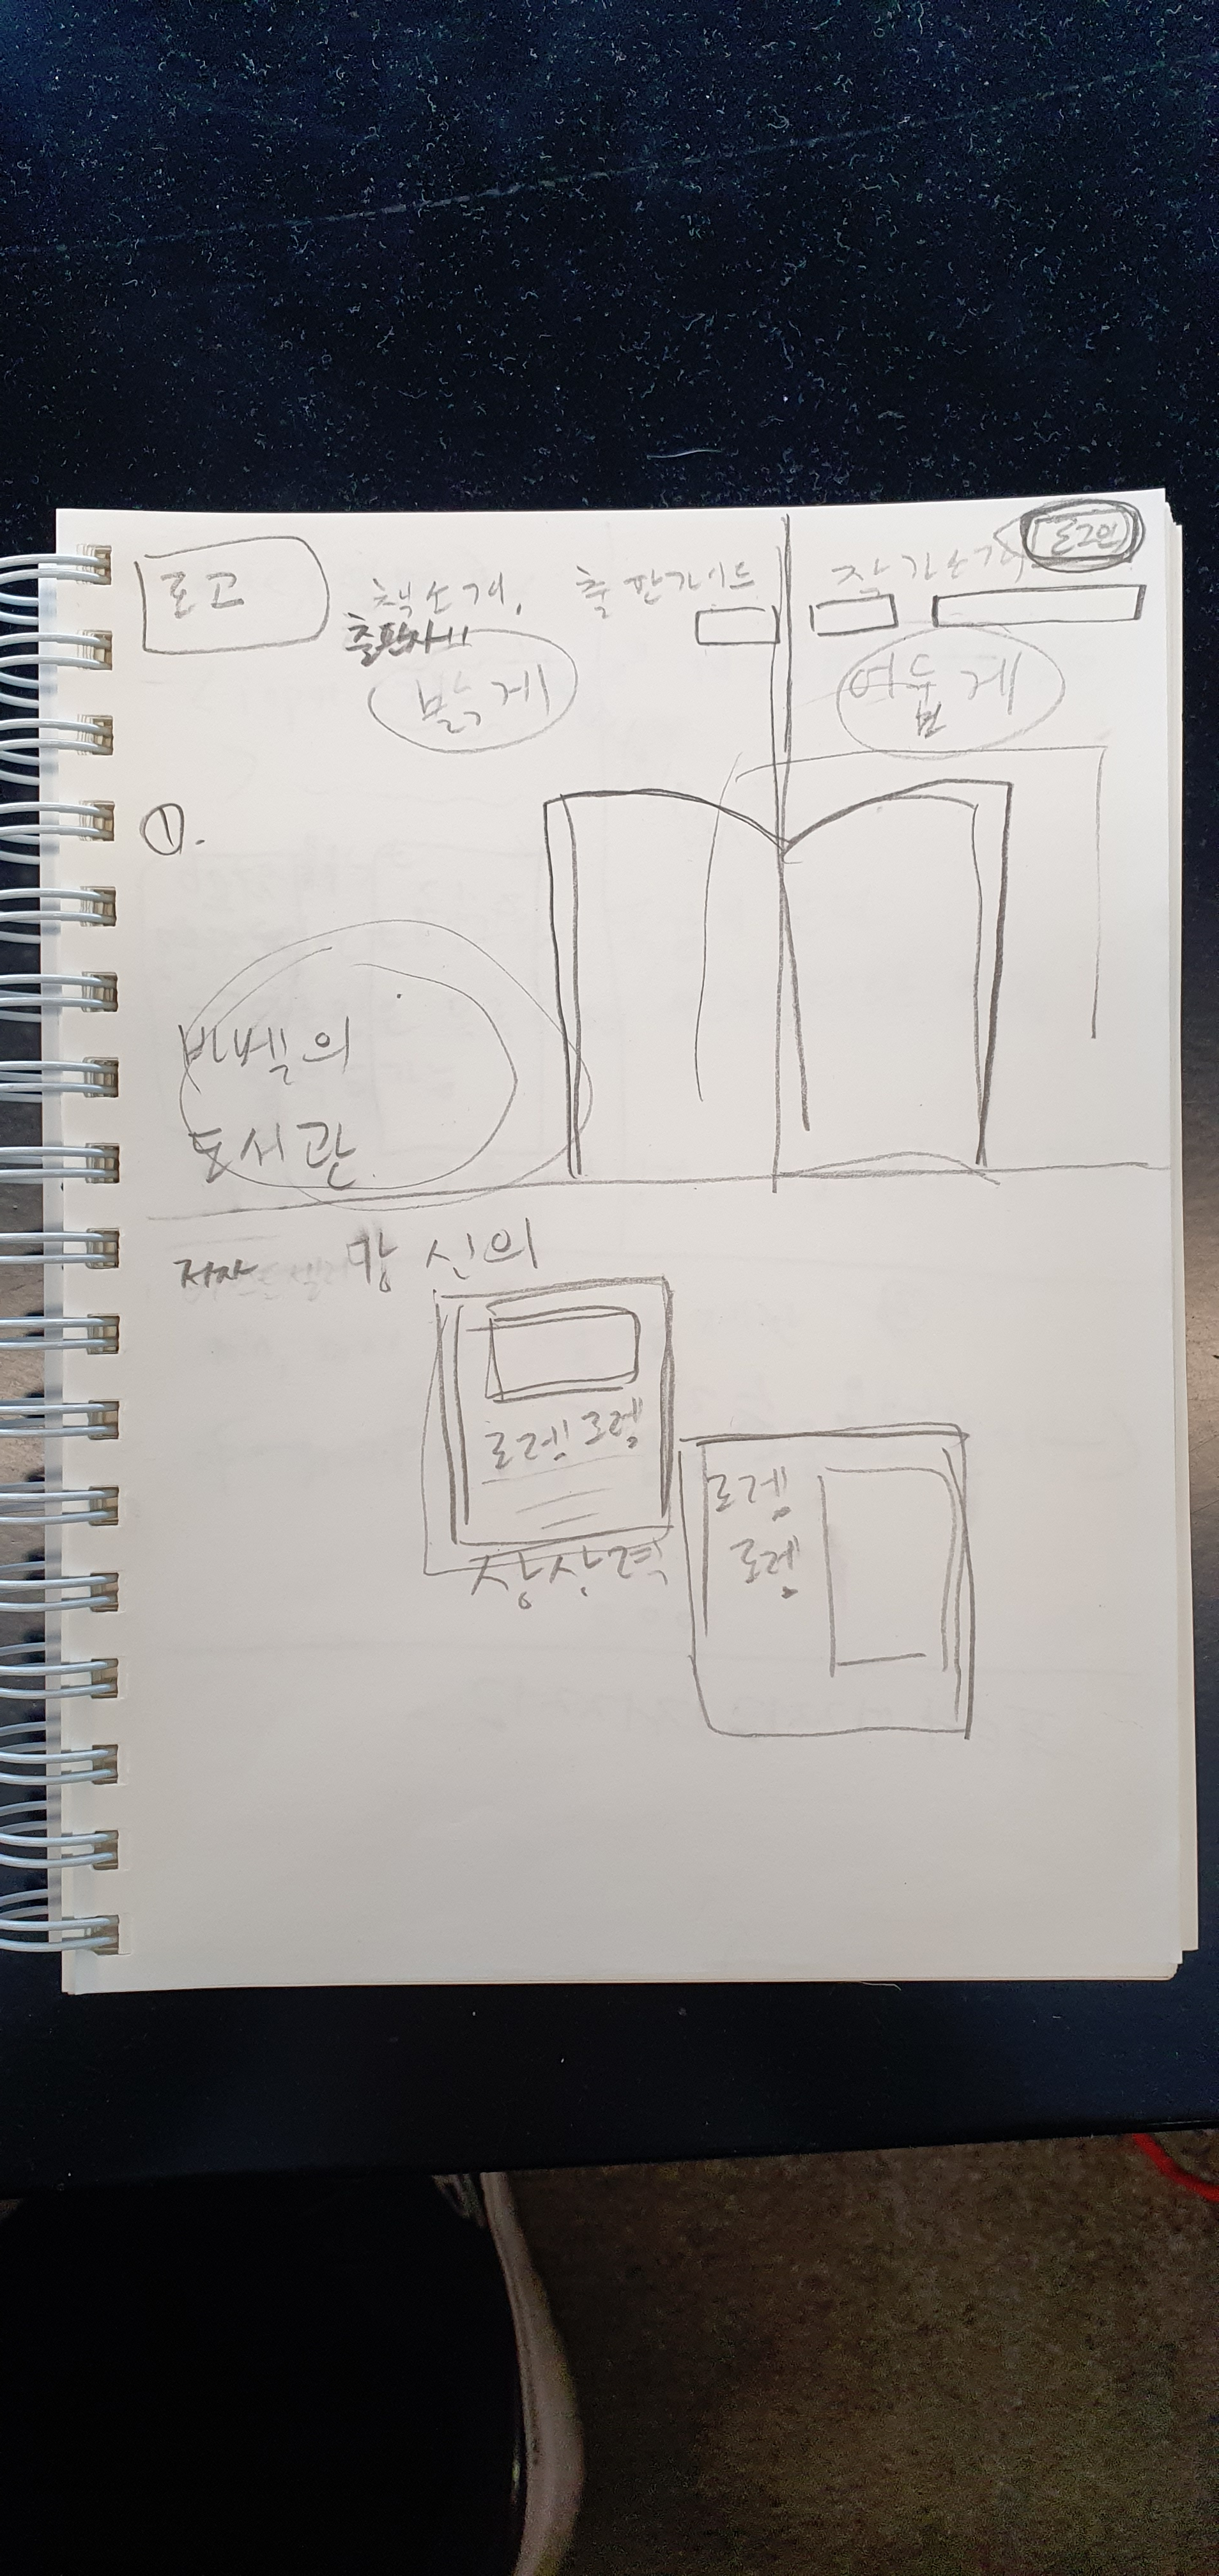 로고
책소개, 출판가이드 작가소개, 로그인
출판사
밝게 어둡게
①.
바벨의
도서관
저자 당신의
로렘로렘
상상력
로렘
로렘